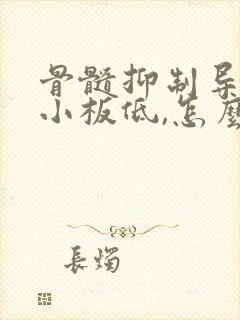 骨髓抑制导
小板低,怎麼
長燭